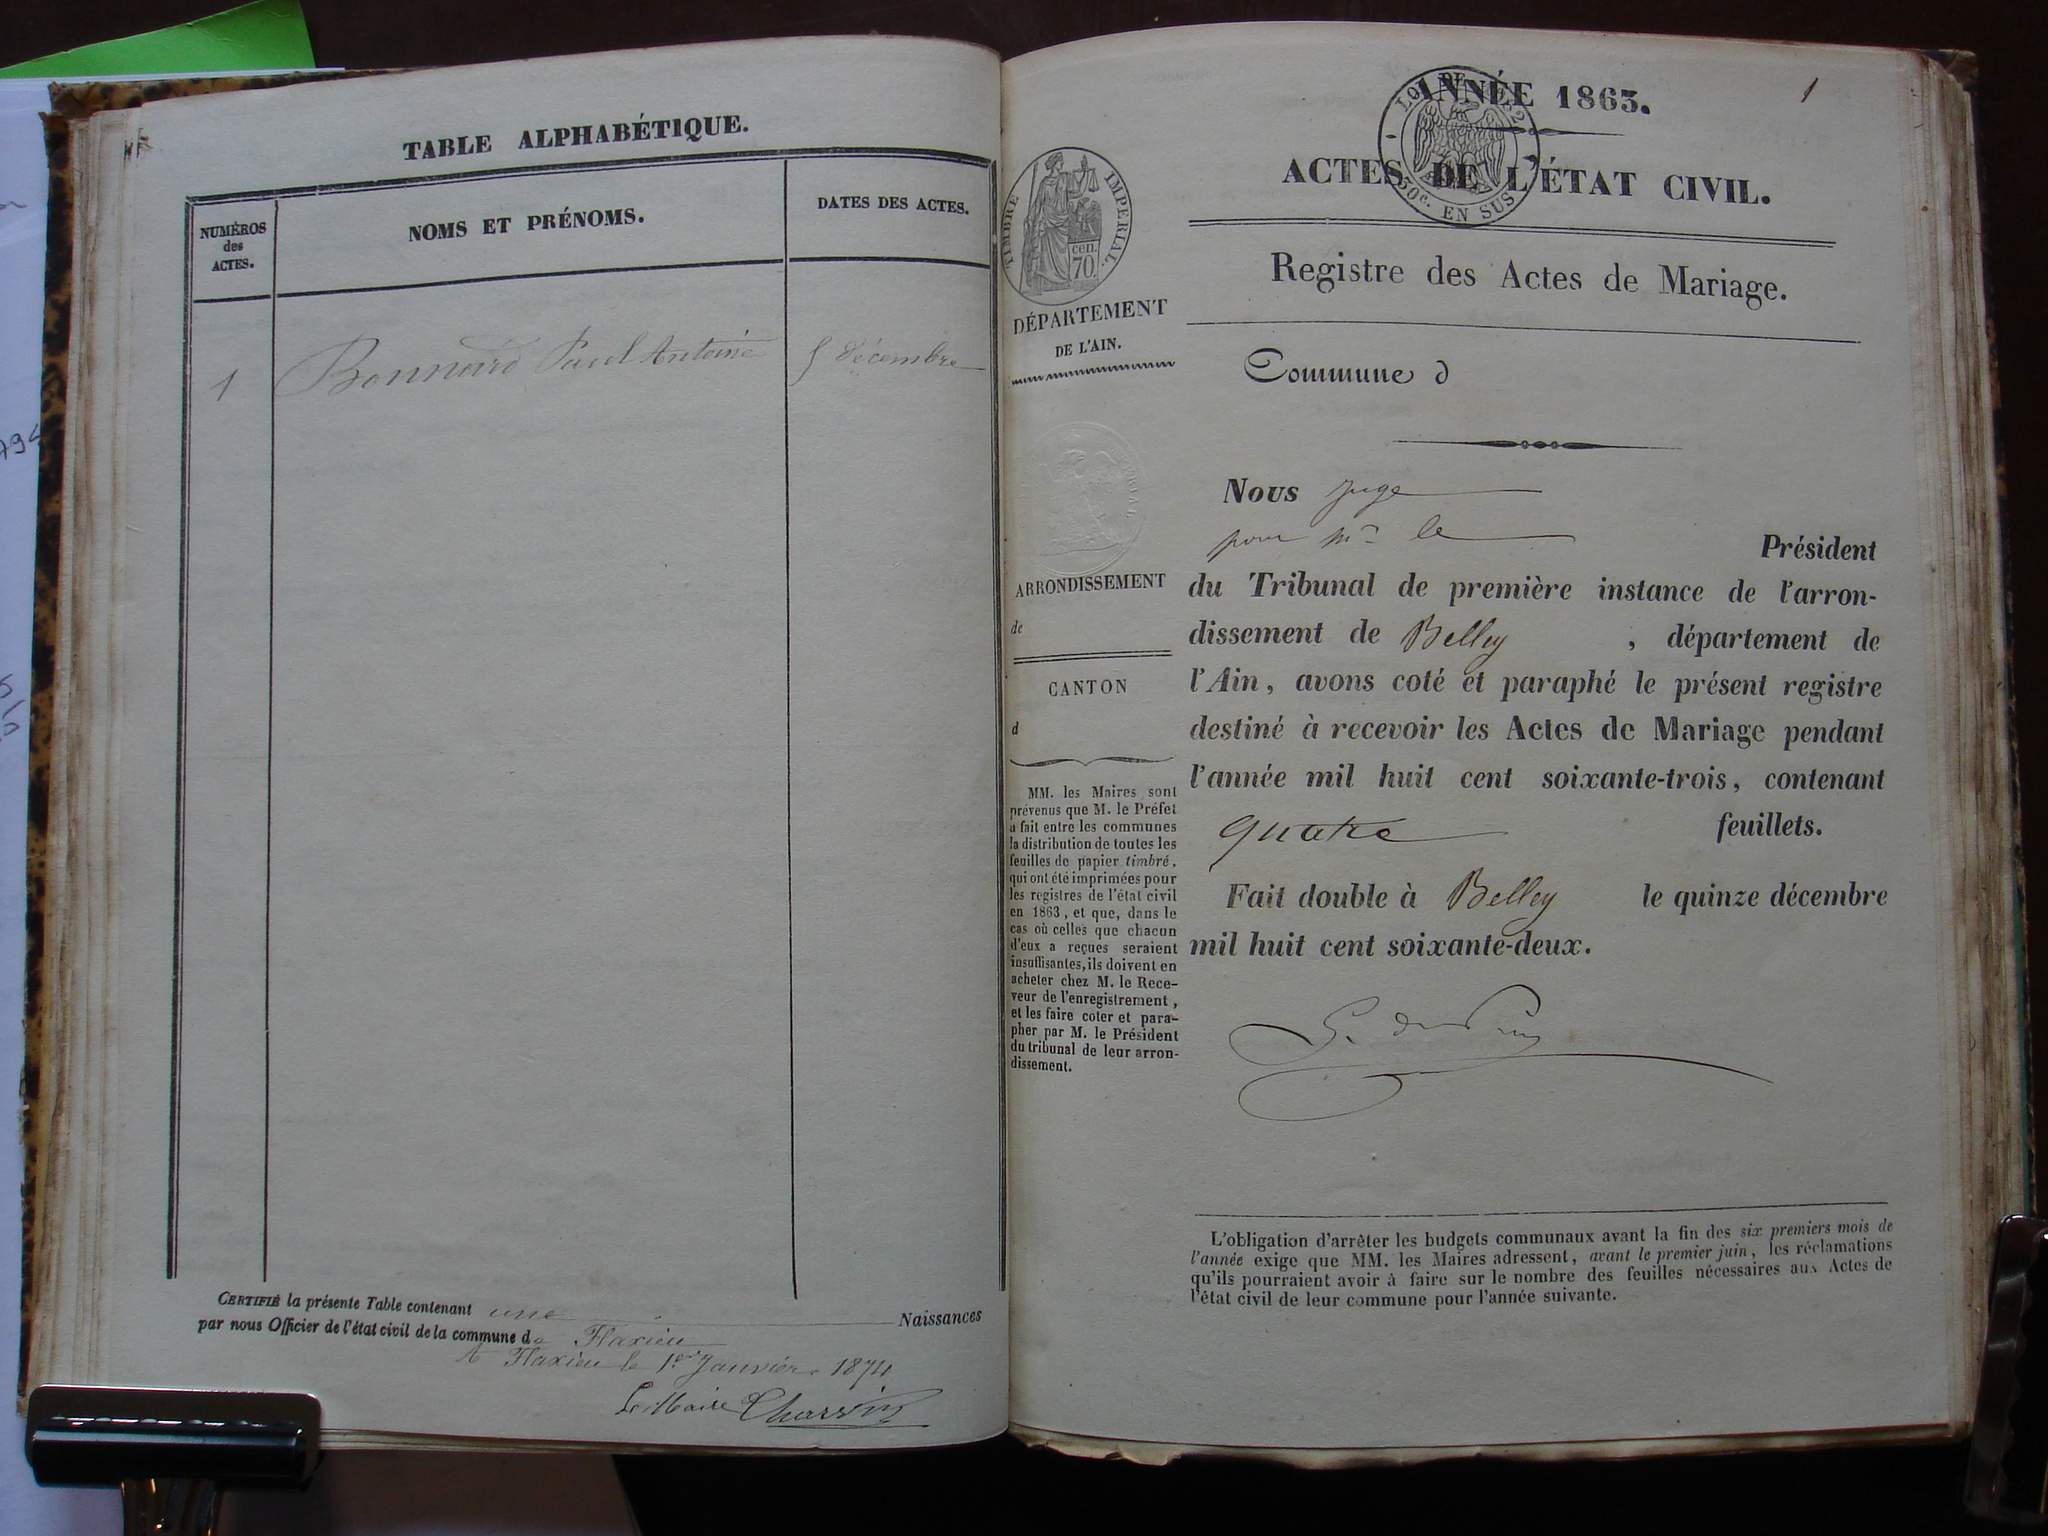 TABLE ALPHABÉTIQUE.
NUMÉROS
des
ACTES.
NOMS ET PRÉNOMS.
DATES DES ACTES.
1 Bonnard Paul Antoine 5 décembre
CERTIFIÉ la présente Table contenant une Naissances
par nous Officier de l'état civil de la commune de Flaxieu
A Flaxieu le 1er Janvier 1874
Le Maire
1
ANNÉE 1863.
ACTES DE L'ÉTAT CIVIL.
50c. EN SUS
Registre des Actes de Mariage.
TIMBRE IMPERIAL
cen.
70.
DÉPARTEMENT
DE L'AIN.
ARRONDISSEMENT
de
CANTON
d
MM. les Maires sont
prévenus que M. le Préfet
a fait entre les communes
la distribution de toutes les
feuilles de papier timbré,
qui ont été imprimées pour
les registres de l'état civil
en 1863, et que, dans le
cas où celles que chacun
d'eux a reçues seraient
insuffisantes, ils doivent en
acheter chez M. le Rece-
veur de l'enregistrement,
et les faire coter et para-
pher par M. le Président
du tribunal de leur arron-
dissement.
Commune d
Nous juge
pour Mr le Président
du Tribunal de première instance de l'arron-
dissement de Belley , département de
l'Ain, avons coté et paraphé le présent registre
destiné à recevoir les Actes de Mariage pendant
l'année mil huit cent soixante-trois, contenant
quatre feuillets.
Fait double à Belley le quinze décembre
mil huit cent soixante-deux.
L'obligation d'arrêter les budgets communaux avant la fin des six premiers mois de
l'année exige que MM. les Maires adressent, avant le premier juin, les réclamations
qu'ils pourraient avoir à faire sur le nombre des feuilles nécessaires aux Actes de
l'état civil de leur commune pour l'année suivante.